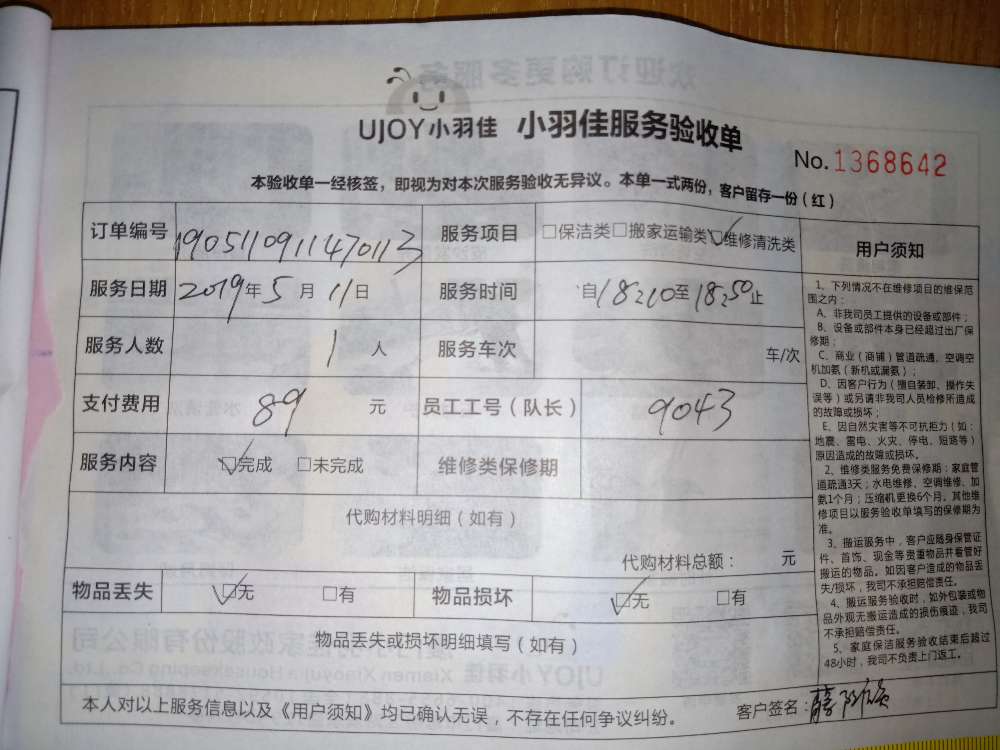 UJOY小羽佳 小羽佳服务验收单
No. 1368642
本验收单一经核签，即视为对本次服务验收无异议。本单一式两份，客户留存一份（红）
订单编号 1905110911470113 服务项目 □保洁类 □搬家运输类 ☑维修清洗类
服务日期 2019年5月11日 服务时间 自18:10至18:50止
服务人数 1人 服务车次 车/次
支付费用 89元 员工工号（队长） 9043
服务内容 ☑完成 □未完成 维修类保修期
代购材料明细（如有）
代购材料总额： 元
物品丢失 ☑无 □有 物品损坏 ☑无 □有
物品丢失或损坏明细填写（如有）
本人对以上服务信息以及《用户须知》均已确认无误，不存在任何争议纠纷。 客户签名：
用户须知
1、下列情况不在维修项目的维保范
围之内：
A、非我司员工提供的设备或部件；
B、设备或部件本身已经超过出厂保
修期；
C、商业（商铺）管道疏通、空调空
机加氨（新机或漏氨）；
D、因客户行为（擅自装卸、操作失
误等）或另请非我司人员检修所造成
的故障或损坏；
E、因自然灾害等不可抗拒力（如：
地震、雷电、火灾、停电、短路等）
原因造成的故障或损坏。
2、维修类服务免费保修期：家庭管
道疏通3天；水电维修、空调维修、加
氨1个月；压缩机更换6个月。其他维
修项目以服务验收单填写的保修期为
准。
3、搬运服务中，客户应随身保管证
件、首饰、现金等贵重物品并看管好
搬运的物品。如因客户造成的物品丢
失/损坏，我司不承担赔偿责任。
4、搬运服务验收时，如外包装或物
品外观无搬运造成的损伤痕迹，我司
不承担赔偿责任。
5、家庭保洁服务验收结束后超过
48小时，我司不负责上门返工。